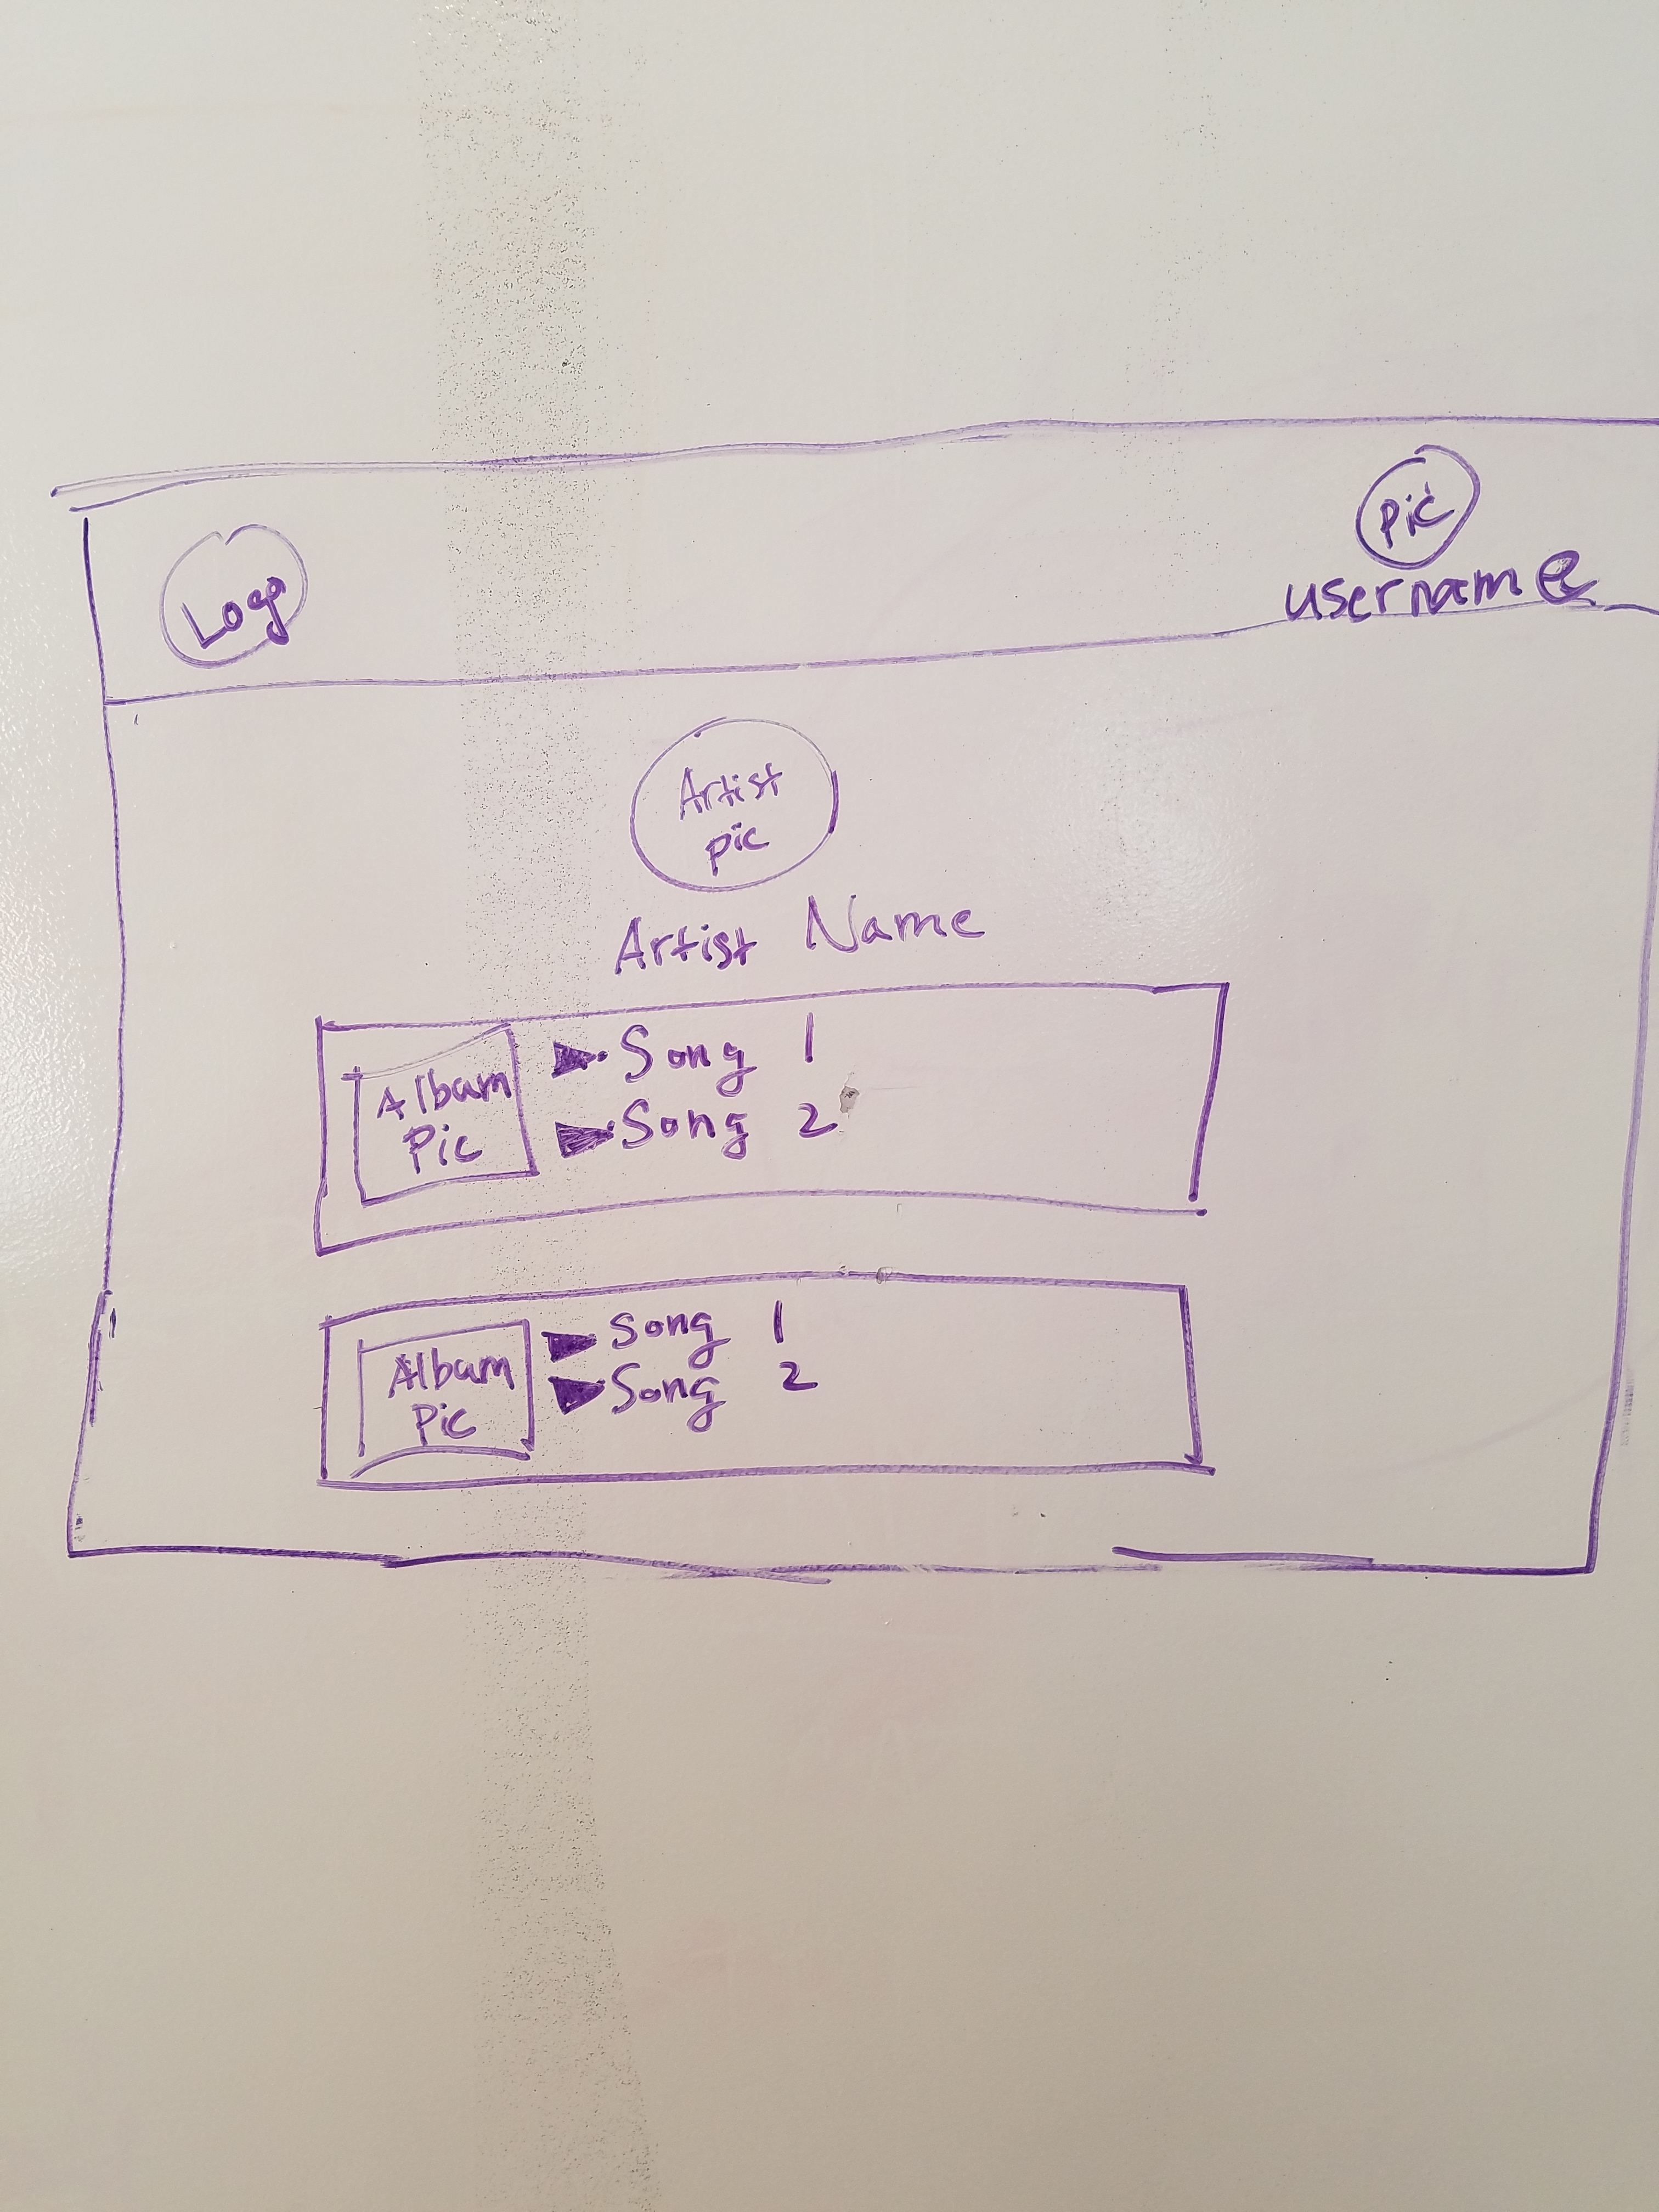 Logo
Pic
username
Artist
pic
Artist Name
Album
Pic
Song 1
Song 2
Album
Pic
Song 1
Song 2